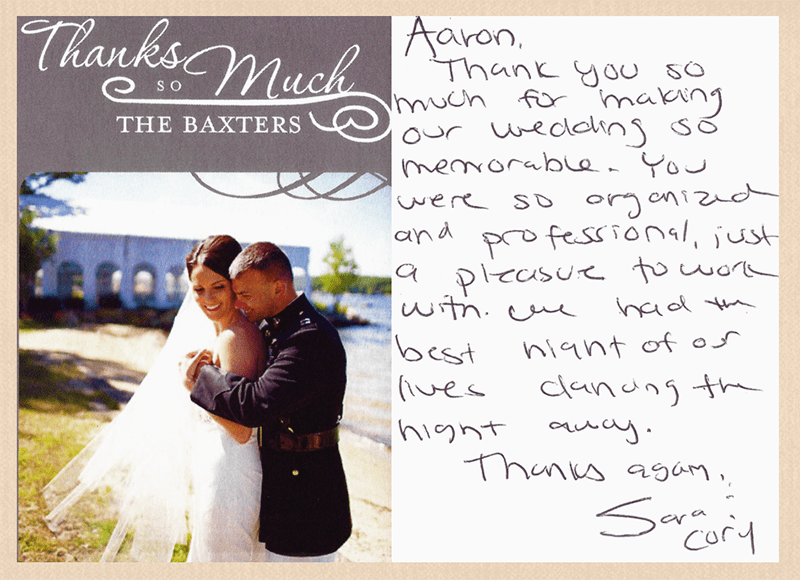 Thanks
so Much
THE BAXTERS
Aaron,
Thank you so
much for making
our wedding so
memorable. You
were so organized
and professional, just
a pleasure to work
with. We had the
best night of our
lives dancing the
night away.
Thanks again,
Sara &
Cory